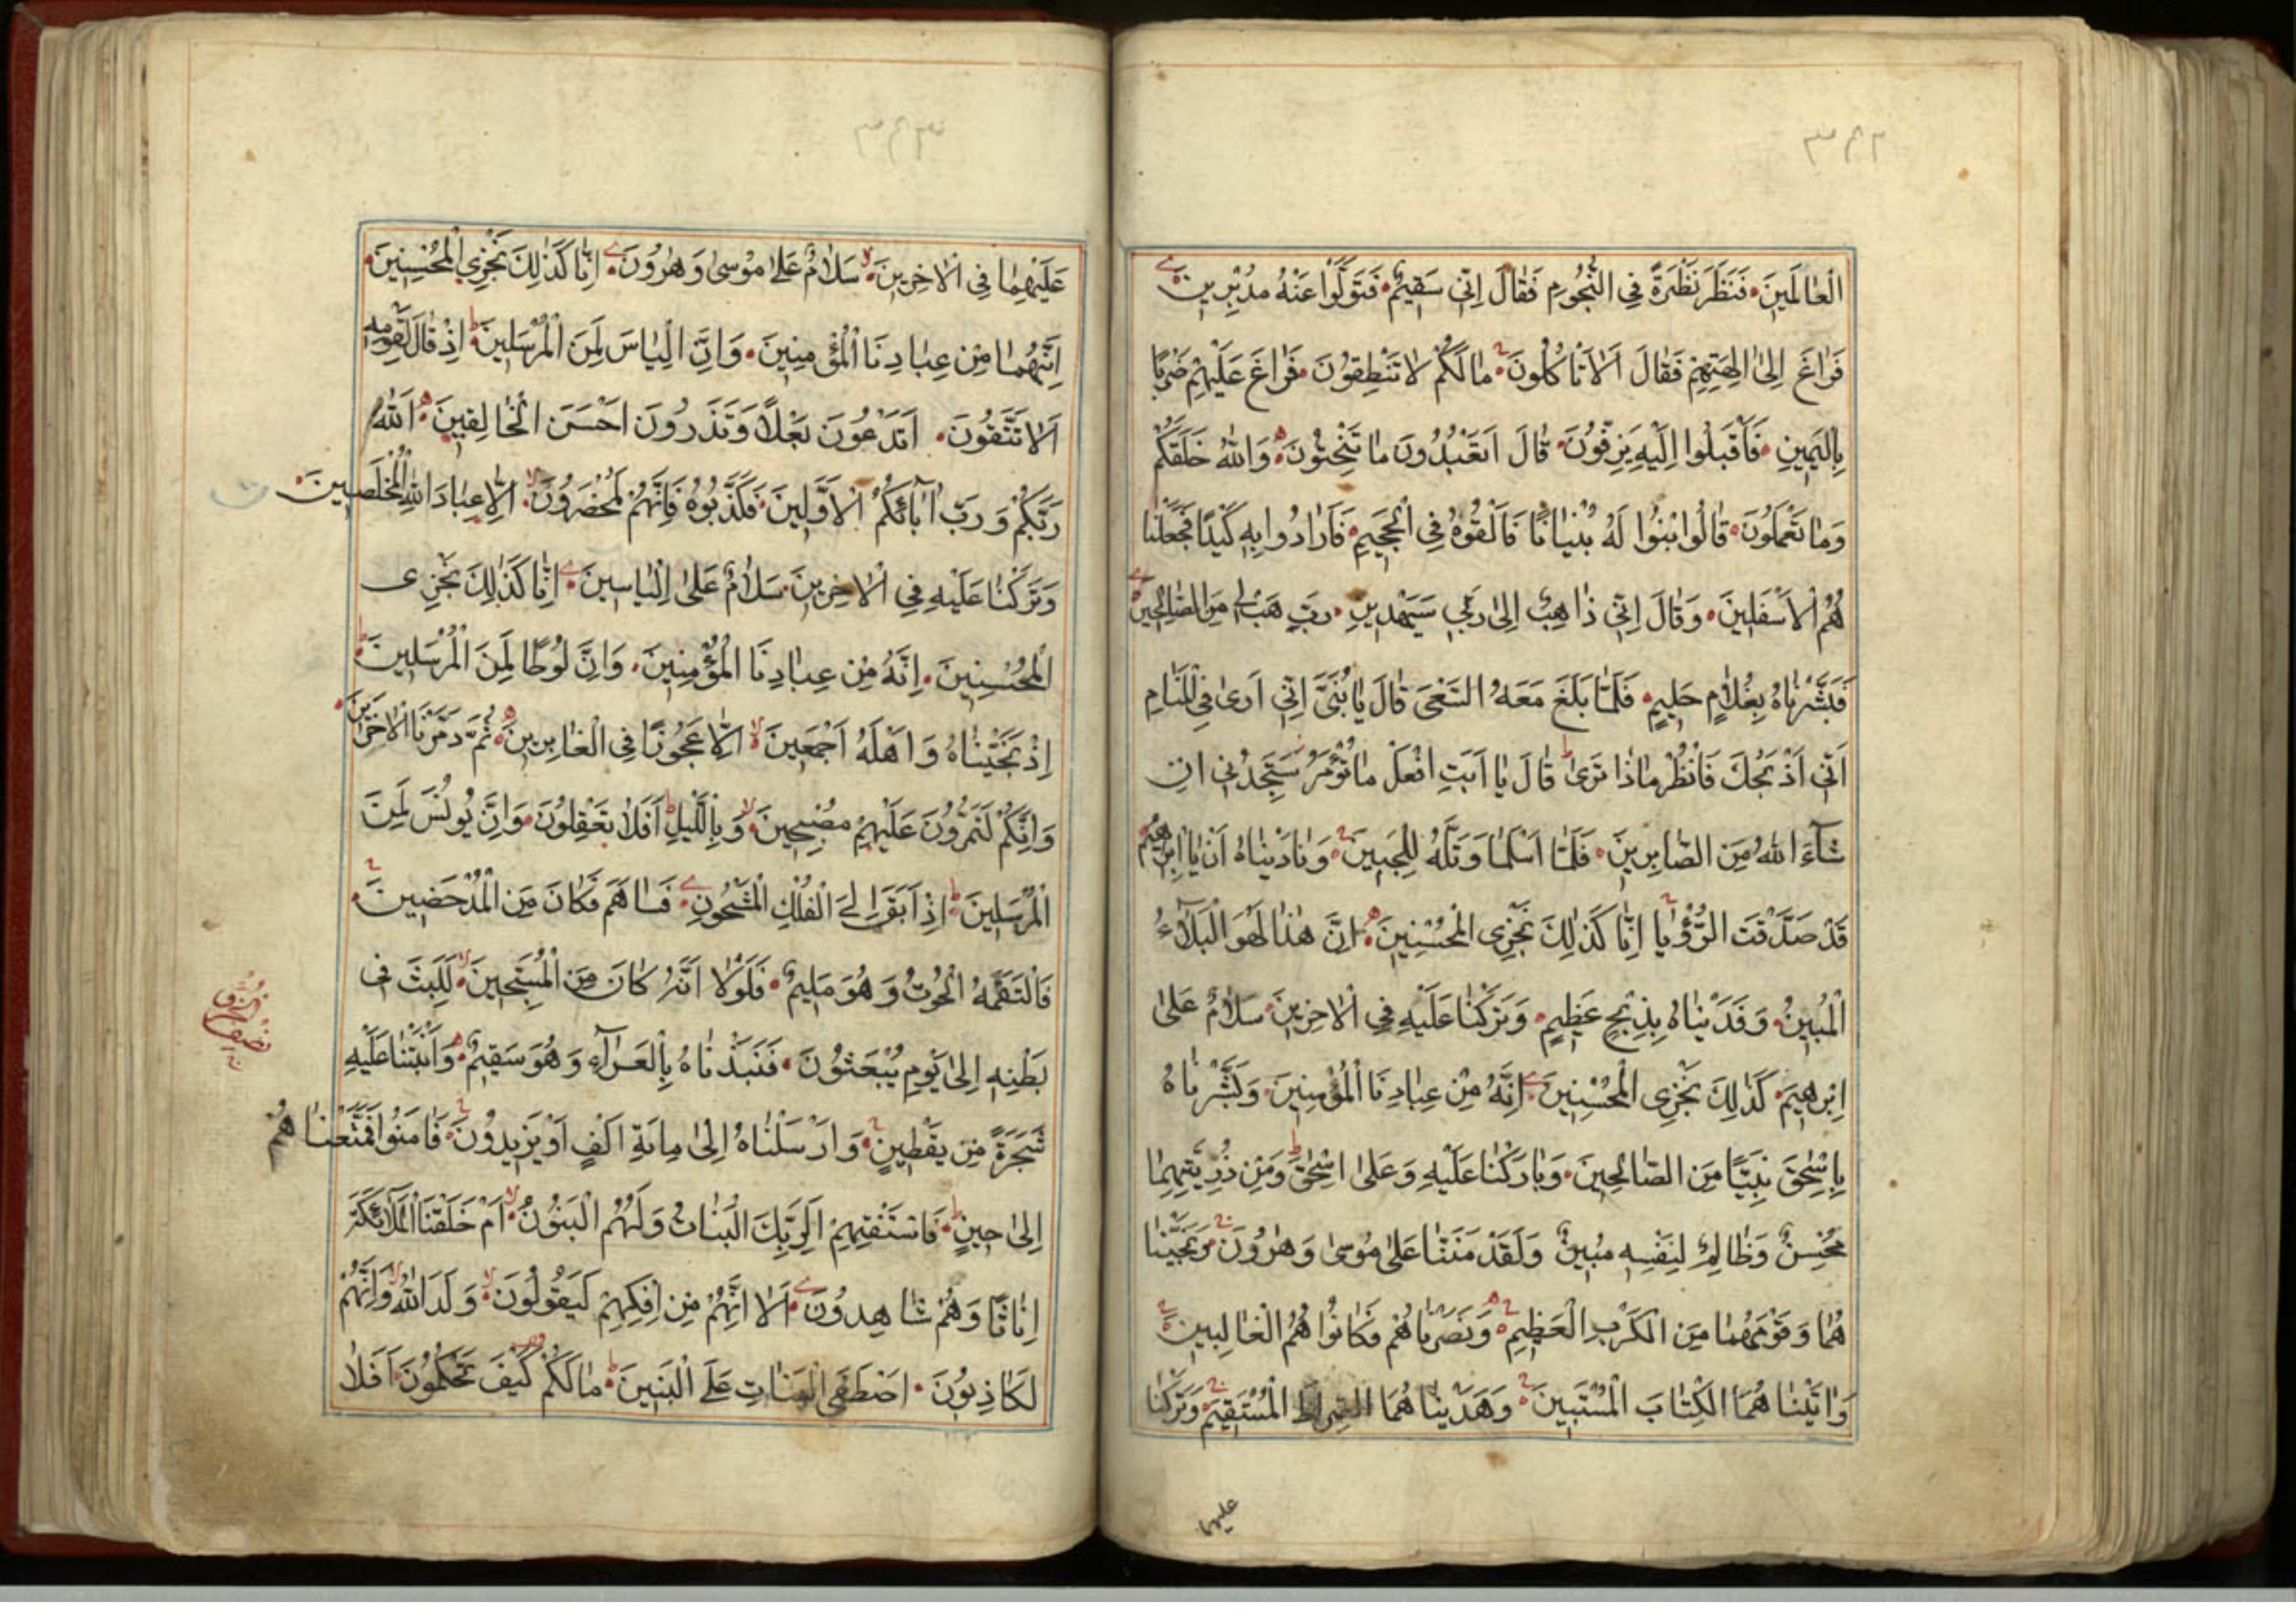 ٣٤٢
الْعٰالَمِينَ فَنَظَرَ نَظْرَةً فِي النُّجُومِ فَقٰالَ اِنّٖي سَقِيمٌ فَتَوَلَّوْا عَنْهُ مُدْبِرِينَ
فَرٰاغَ اِلىٰ اٰلِهَتِهِمْ فَقٰالَ اَلٰا تَأْكُلُونَ مٰا لَكُمْ لٰا تَنْطِقُونَ فَرٰاغَ عَلَيْهِمْ ضَرْبًا
بِالْيَمِينِ فَأَقْبَلُوا اِلَيْهِ يَزِفُّونَ قٰالَ اَتَعْبُدُونَ مٰا تَنْحِتُونَ وَاللّٰهُ خَلَقَكُمْ
وَمٰا تَعْمَلُونَ قٰالُوا ابْنُوا لَهُ بُنْيٰانًا فَاَلْقُوهُ فِي الْجَحِيمِ فَاَرٰادُوا بِهِ كَيْدًا فَجَعَلْنٰا
هُمُ الْاَسْفَلِينَ وَقٰالَ اِنّٖي ذٰاهِبٌ اِلىٰ رَبّٖي سَيَهْدِينِ رَبِّ هَبْ لِي مِنَ الصّٰالِحِينَ
فَبَشَّرْنٰاهُ بِغُلٰامٍ حَلِيمٍ فَلَمّٰا بَلَغَ مَعَهُ السَّعْيَ قٰالَ يٰا بُنَيَّ اِنّٖي اَرىٰ فِي الْمَنٰامِ
اَنّٖي اَذْبَحُكَ فَانْظُرْ مٰاذٰا تَرىٰ قٰالَ يٰا اَبَتِ افْعَلْ مٰا تُؤْمَرُ سَتَجِدُنِي اِنْ
شٰآءَ اللّٰهُ مِنَ الصّٰابِرِينَ فَلَمّٰا اَسْلَمٰا وَتَلَّهُ لِلْجَبِينِ وَنٰادَيْنٰاهُ اَنْ يٰا اِبْرٰهِيمُ
قَدْ صَدَّقْتَ الرُّؤْيٰا اِنّٰا كَذٰلِكَ نَجْزِي الْمُحْسِنِينَ اِنَّ هٰذٰا لَهُوَ الْبَلٰآءُ
الْمُبِينُ وَفَدَيْنٰاهُ بِذِبْحٍ عَظِيمٍ وَتَرَكْنٰا عَلَيْهِ فِي الْاٰخِرِينَ سَلٰامٌ عَلىٰ
اِبْرٰهِيمَ كَذٰلِكَ نَجْزِي الْمُحْسِنِينَ اِنَّهُ مِنْ عِبٰادِنَا الْمُؤْمِنِينَ وَبَشَّرْنٰاهُ
بِاِسْحٰقَ نَبِيًّا مِنَ الصّٰالِحِينَ وَبٰارَكْنٰا عَلَيْهِ وَعَلىٰ اِسْحٰقَ وَمِنْ ذُرِّيَّتِهِمٰا
مُحْسِنٌ وَظٰالِمٌ لِنَفْسِهِ مُبِينٌ وَلَقَدْ مَنَنّٰا عَلىٰ مُوسىٰ وَهٰرُونَ وَنَجَّيْنٰا
هُمٰا وَقَوْمَهُمٰا مِنَ الْكَرْبِ الْعَظِيمِ وَنَصَرْنٰاهُمْ فَكٰانُوا هُمُ الْغٰالِبِينَ
وَاٰتَيْنٰا هُمَا الْكِتٰابَ الْمُسْتَبِينَ وَهَدَيْنٰا هُمَا الصِّرٰاطَ الْمُسْتَقِيمَ وَتَرَكْنٰا
عليهما
٣٤٣
عَلَيْهِمٰا فِي الْاٰخِرِينَ سَلٰامٌ عَلىٰ مُوْسىٰ وَهٰرُونَ اِنّٰا كَذٰلِكَ نَجْزِي الْمُحْسِنِينَ
اِنَّهُمٰا مِنْ عِبٰادِنَا الْمُؤْمِنِينَ وَاِنَّ اِلْيٰاسَ لَمِنَ الْمُرْسَلِينَ اِذْ قٰالَ لِقَوْمِهِ
اَلٰا تَتَّقُونَ اَتَدْعُونَ بَعْلًا وَتَذَرُونَ اَحْسَنَ الْخٰالِقِينَ اَللّٰهَ
رَبَّكُمْ وَرَبَّ اٰبٰآئِكُمُ الْاَوَّلِينَ فَكَذَّبُوهُ فَاِنَّهُمْ لَمُحْضَرُونَ اِلّٰا عِبٰادَ اللّٰهِ الْمُخْلَصِينَ
وَتَرَكْنٰا عَلَيْهِ فِي الْاٰخِرِينَ سَلٰامٌ عَلىٰ اِلْيٰاسِينَ اِنّٰا كَذٰلِكَ نَجْزِي
الْمُحْسِنِينَ اِنَّهُ مِنْ عِبٰادِنَا الْمُؤْمِنِينَ وَاِنَّ لُوطًا لَمِنَ الْمُرْسَلِينَ
اِذْ نَجَّيْنٰاهُ وَاَهْلَهُ اَجْمَعِينَ اِلّٰا عَجُوزًا فِي الْغٰابِرِينَ ثُمَّ دَمَّرْنَا الْاٰخَرِينَ
وَاِنَّكُمْ لَتَمُرُّونَ عَلَيْهِمْ مُصْبِحِينَ وَبِالَّيْلِ اَفَلٰا تَعْقِلُونَ وَاِنَّ يُونُسَ لَمِنَ
الْمُرْسَلِينَ اِذْ اَبَقَ اِلَى الْفُلْكِ الْمَشْحُونِ فَسٰاهَمَ فَكٰانَ مِنَ الْمُدْحَضِينَ
فَالْتَقَمَهُ الْحُوتُ وَهُوَ مُلِيمٌ فَلَوْلٰا اَنَّهُ كٰانَ مِنَ الْمُسَبِّحِينَ لَلَبِثَ فِي
بَطْنِهِ اِلىٰ يَوْمِ يُبْعَثُونَ فَنَبَذْنٰاهُ بِالْعَرٰآءِ وَهُوَ سَقِيمٌ وَاَنْبَتْنٰا عَلَيْهِ
شَجَرَةً مِنْ يَقْطِينٍ وَاَرْسَلْنٰاهُ اِلىٰ مِائَةِ اَلْفٍ اَوْ يَزِيدُونَ فَاٰمَنُوا فَمَتَّعْنٰا هُمْ
اِلىٰ حِينٍ فَاسْتَفْتِهِمْ اَلِرَبِّكَ الْبَنٰاتُ وَلَهُمُ الْبَنُونُ اَمْ خَلَقْنَا الْمَلٰآئِكَةَ
اِنٰاثًا وَهُمْ شٰاهِدُونَ اَلٰا اِنَّهُمْ مِنْ اِفْكِهِمْ لَيَقُولُونَ وَلَدَ اللّٰهُ وَاِنَّهُمْ
لَكٰاذِبُونَ اصْطَفَى الْبَنٰاتِ عَلَى الْبَنِينَ مٰا لَكُمْ كَيْفَ تَحْكُمُونَ اَفَلٰا